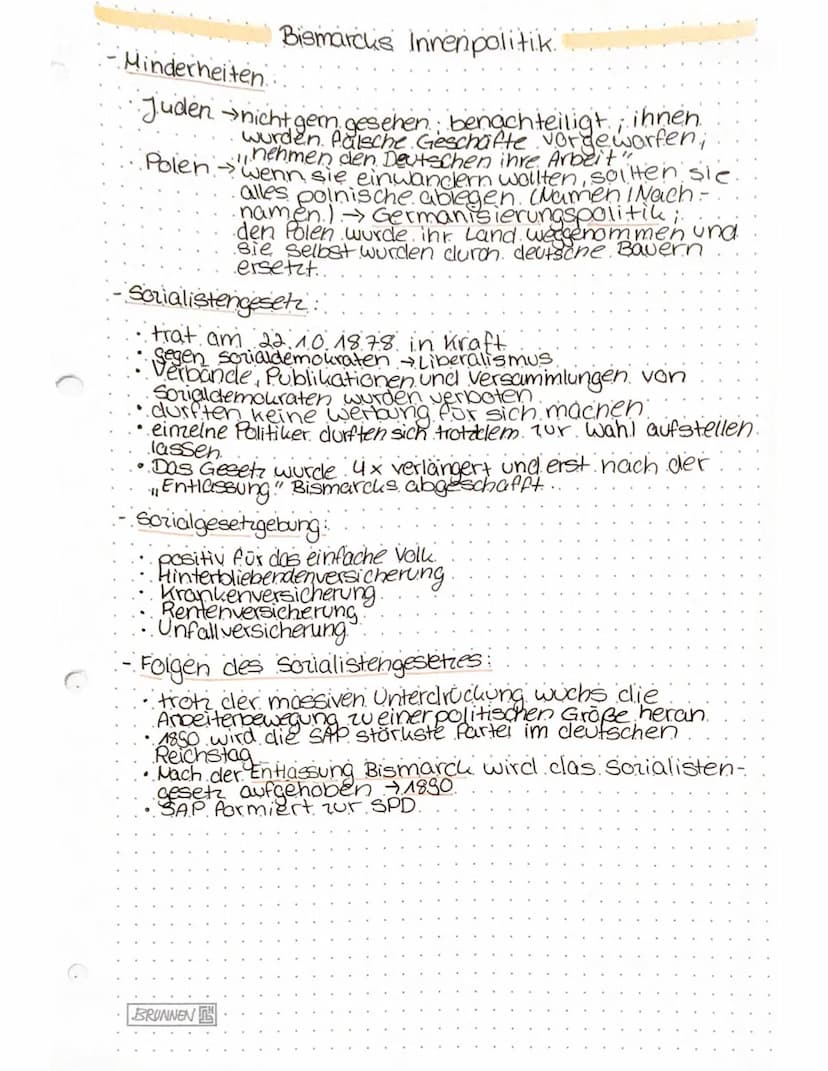 Bismarcks Innenpolitik.
- Minderheiten:
· Juden → nicht gern gesehen; benachteiligt; ihnen
wurden falsche Geschäfte vorgeworfen;
„nehmen den Deutschen ihre Arbeit"
· Polen → wenn sie einwandern wollten, sollten sie
alles polnische ablegen (Namen/Nach-
namen) → Germanisierungspolitik;
den Polen wurde ihr Land weggenommen und
sie selbst wurden durch deutsche Bauern
ersetzt.
- Sozialistengesetz:
· trat am 22.10.1878 in Kraft
· gegen Sozialdemokraten → Liberalismus
· Verbände, Publikationen und Versammlungen von
Sozialdemokraten wurden verboten
· durften keine Werbung für sich machen
· einzelne Politiker durften sich trotzdem zur Wahl aufstellen
lassen
· Das Gesetz wurde 4x verlängert und erst nach der
„Entlassung" Bismarcks abgeschafft.
- Sozialgesetzgebung:
· positiv für das einfache Volk
· Hinterbliebendenversicherung
· Krankenversicherung
· Rentenversicherung
· Unfallversicherung
- Folgen des Sozialistengesetzes:
· trotz der massiven Unterdrückung wuchs die
Arbeiterbewegung zu einer politischen Größe heran.
· 1890 wird die SAP stärkste Partei im deutschen
Reichstag
· Nach der Entlassung Bismarck wird das Sozialisten-
gesetz aufgehoben → 1890
· SAP formiert zur SPD
BRUNNEN